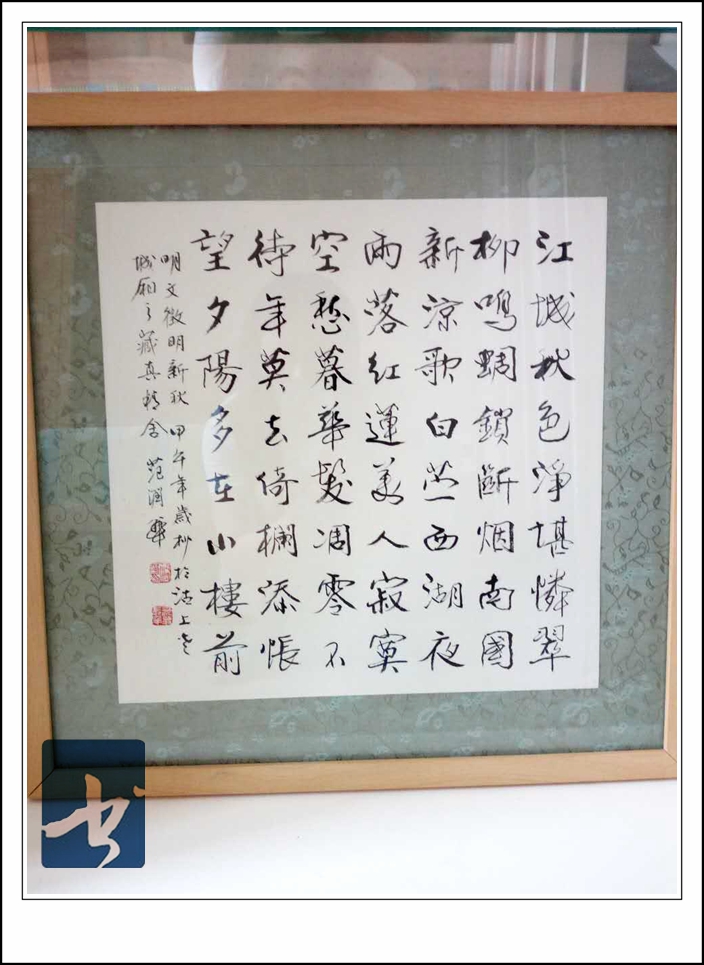 江城秋色淨堪憐翠
柳鳴蜩鎖斷烟南國
新涼歌白苎西湖夜
雨落紅蓮美人寂寞
空愁暮華髮凋零不
待年莫去倚欄添悵
望夕陽多在小樓前
明文徵明新秋 甲午年歲杪於沽上老
城廂之藏真精舍 范潤華
书